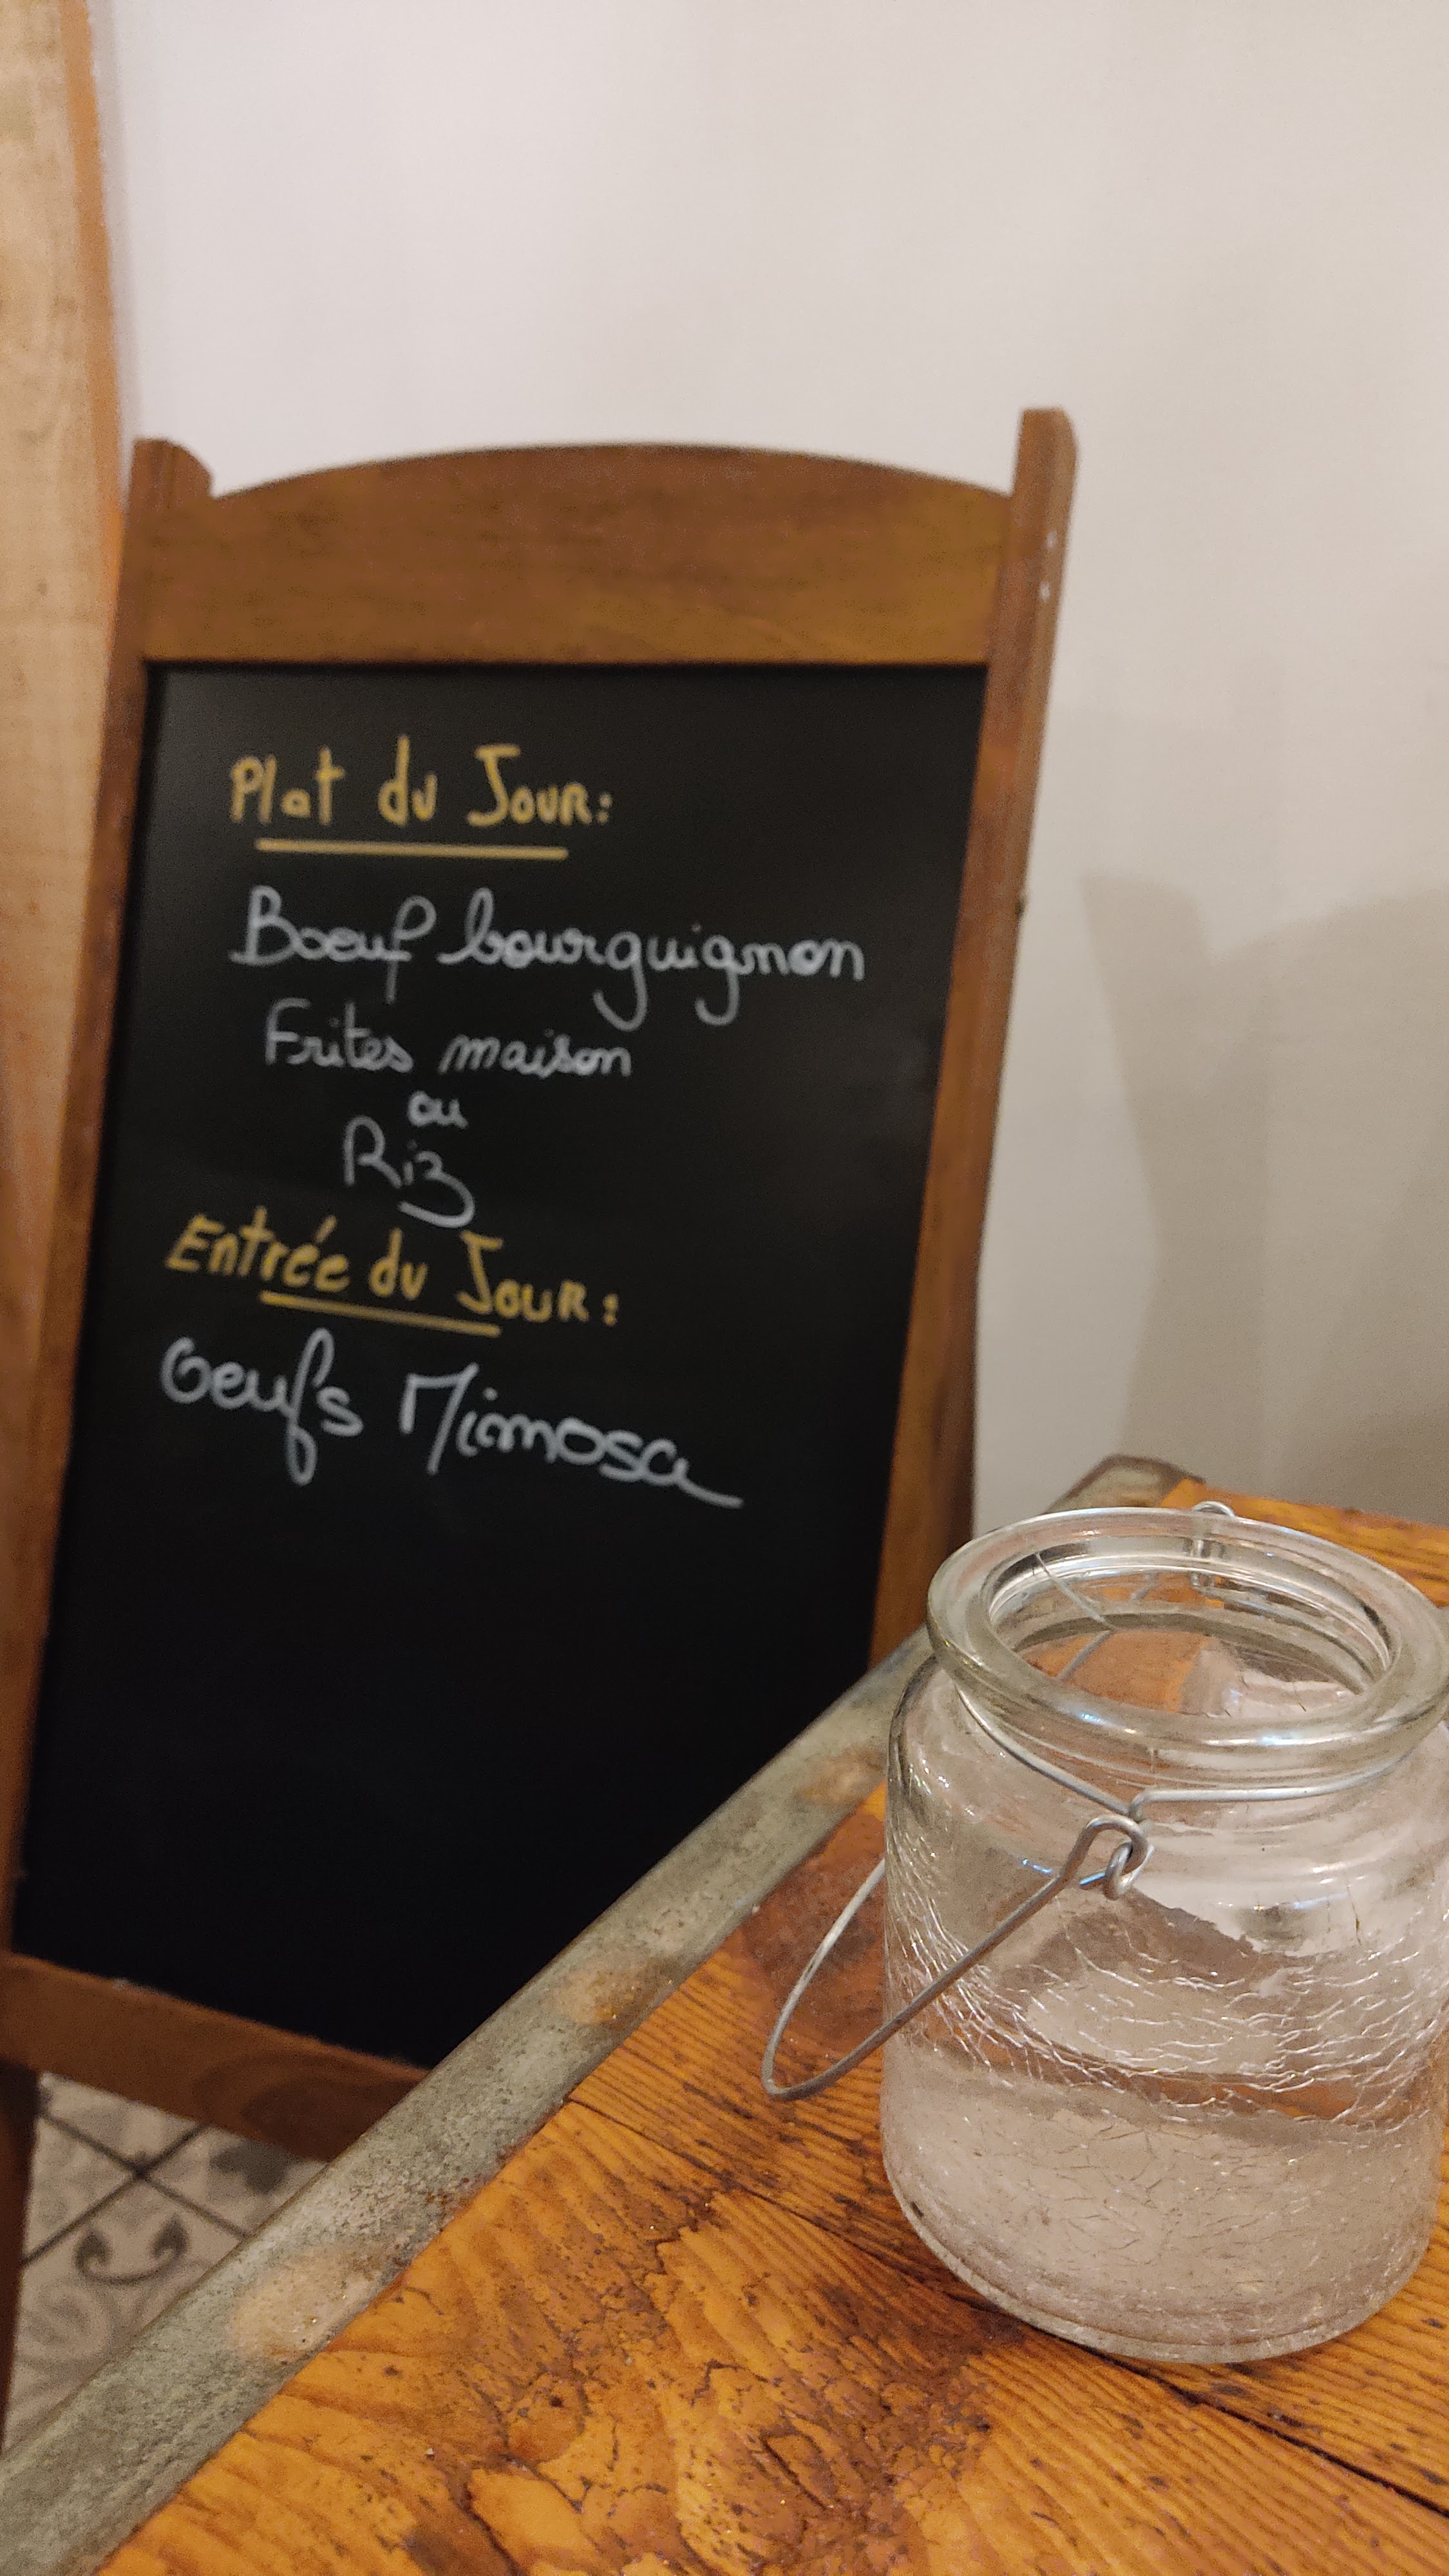 Plat du Jour:
Boeuf bourguignon
Frites maison
ou
Riz
Entrée du Jour:
Oeufs Mimosa